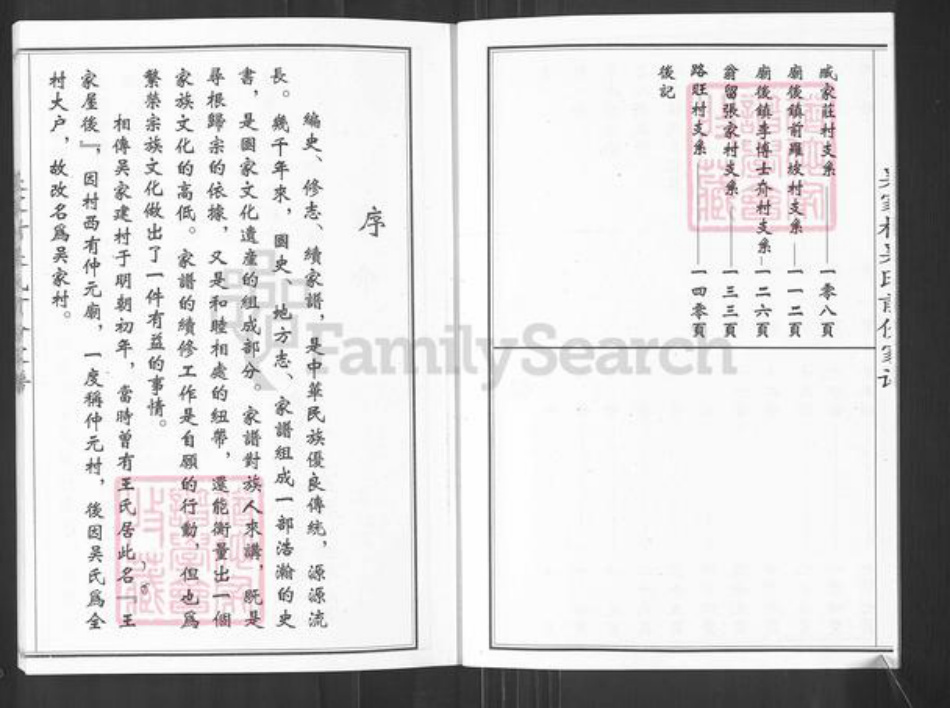 戚家莊村支系——一零八頁
廟後鎮前羅坡村支系——一一二頁
廟後鎮李博士夼村支系—一二六頁
翁留張家村支系——一三三頁
路旺村支系——一四零頁
後記
序
編史、修志、續家譜，是中華民族優良傳統，源源流
長。幾千年來，國史、地方志、家譜組成一部浩瀚的史
書，是國家文化遺產的組成部分。家譜對族人來講，既是
尋根歸宗的依據，又是和睦相處的紐帶，還能衡量出一個
家族文化的高低。家譜的續修工作是自願的行動，但也爲
繁榮宗族文化做出了一件有益的事情。
相傳吳家建村于明朝初年，當時曾有王氏居此名『王
家屋後』，因村西有仲元廟，一度稱仲元村，後因吳氏爲全
村大户，故改名爲吳家村。
FamilySearch